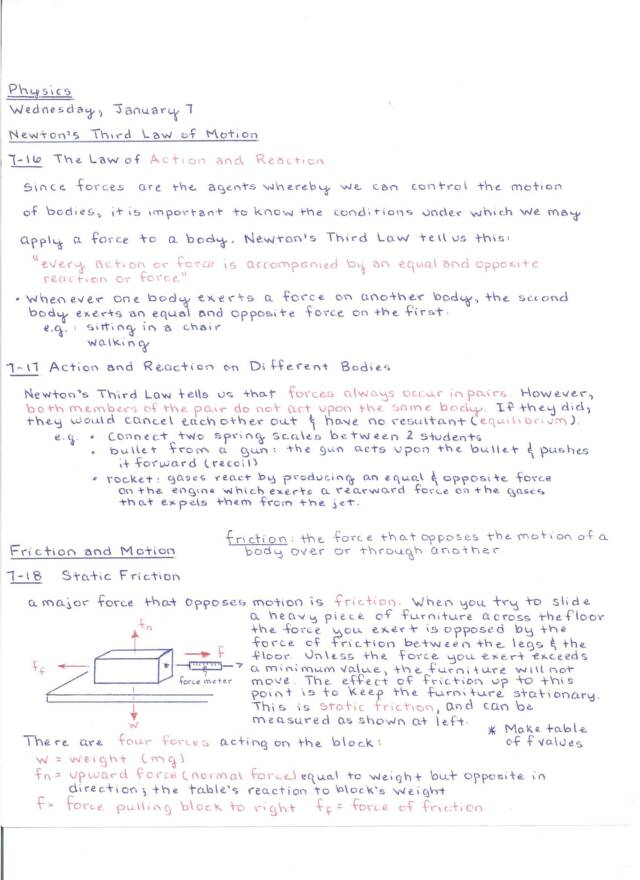 Physics
Wednesday, January 7
Newton's Third Law of Motion
7-16 The Law of Action and Reaction
Since forces are the agents whereby we can control the motion
of bodies, it is important to know the conditions under which we may
apply a force to a body. Newton's Third Law tell us this:
"every action or force is accompanied by an equal and opposite
reaction or force"
• Whenever one body exerts a force on another body, the second
body exerts an equal and opposite force on the first.
e.g. : sitting in a chair
walking
7-17 Action and Reaction on Different Bodies
Newton's Third Law tells us that forces always occur in pairs. However,
both members of the pair do not act upon the same body. If they did,
they would cancel each other out & have no resultant (equilibrium).
e.g. • Connect two spring scales between 2 students
• bullet from a gun: the gun acts upon the bullet & pushes
it forward (recoil)
• rocket: gases react by producing an equal & opposite force
on the engine which exerts a rearward force on the gases
that expels them from the jet.
friction: the force that opposes the motion of a
body over or through another
Friction and Motion
7-18 Static Friction
a major force that opposes motion is friction. When you try to slide
a heavy piece of furniture across the floor
the force you exert is opposed by the
force of friction between the legs & the
floor. Unless the force you exert exceeds
a minimum value, the furniture will not
move. The effect of friction up to this
point is to keep the furniture stationary.
This is static friction, and can be
measured as shown at left.
fn
f
ff
*
force meter
w
* Make table
of f values
There are four forces acting on the block:
w = weight (mg)
fn = upward force (normal force) equal to weight but opposite in
direction; the table's reaction to block's weight
f = force pulling block to right ff = force of friction